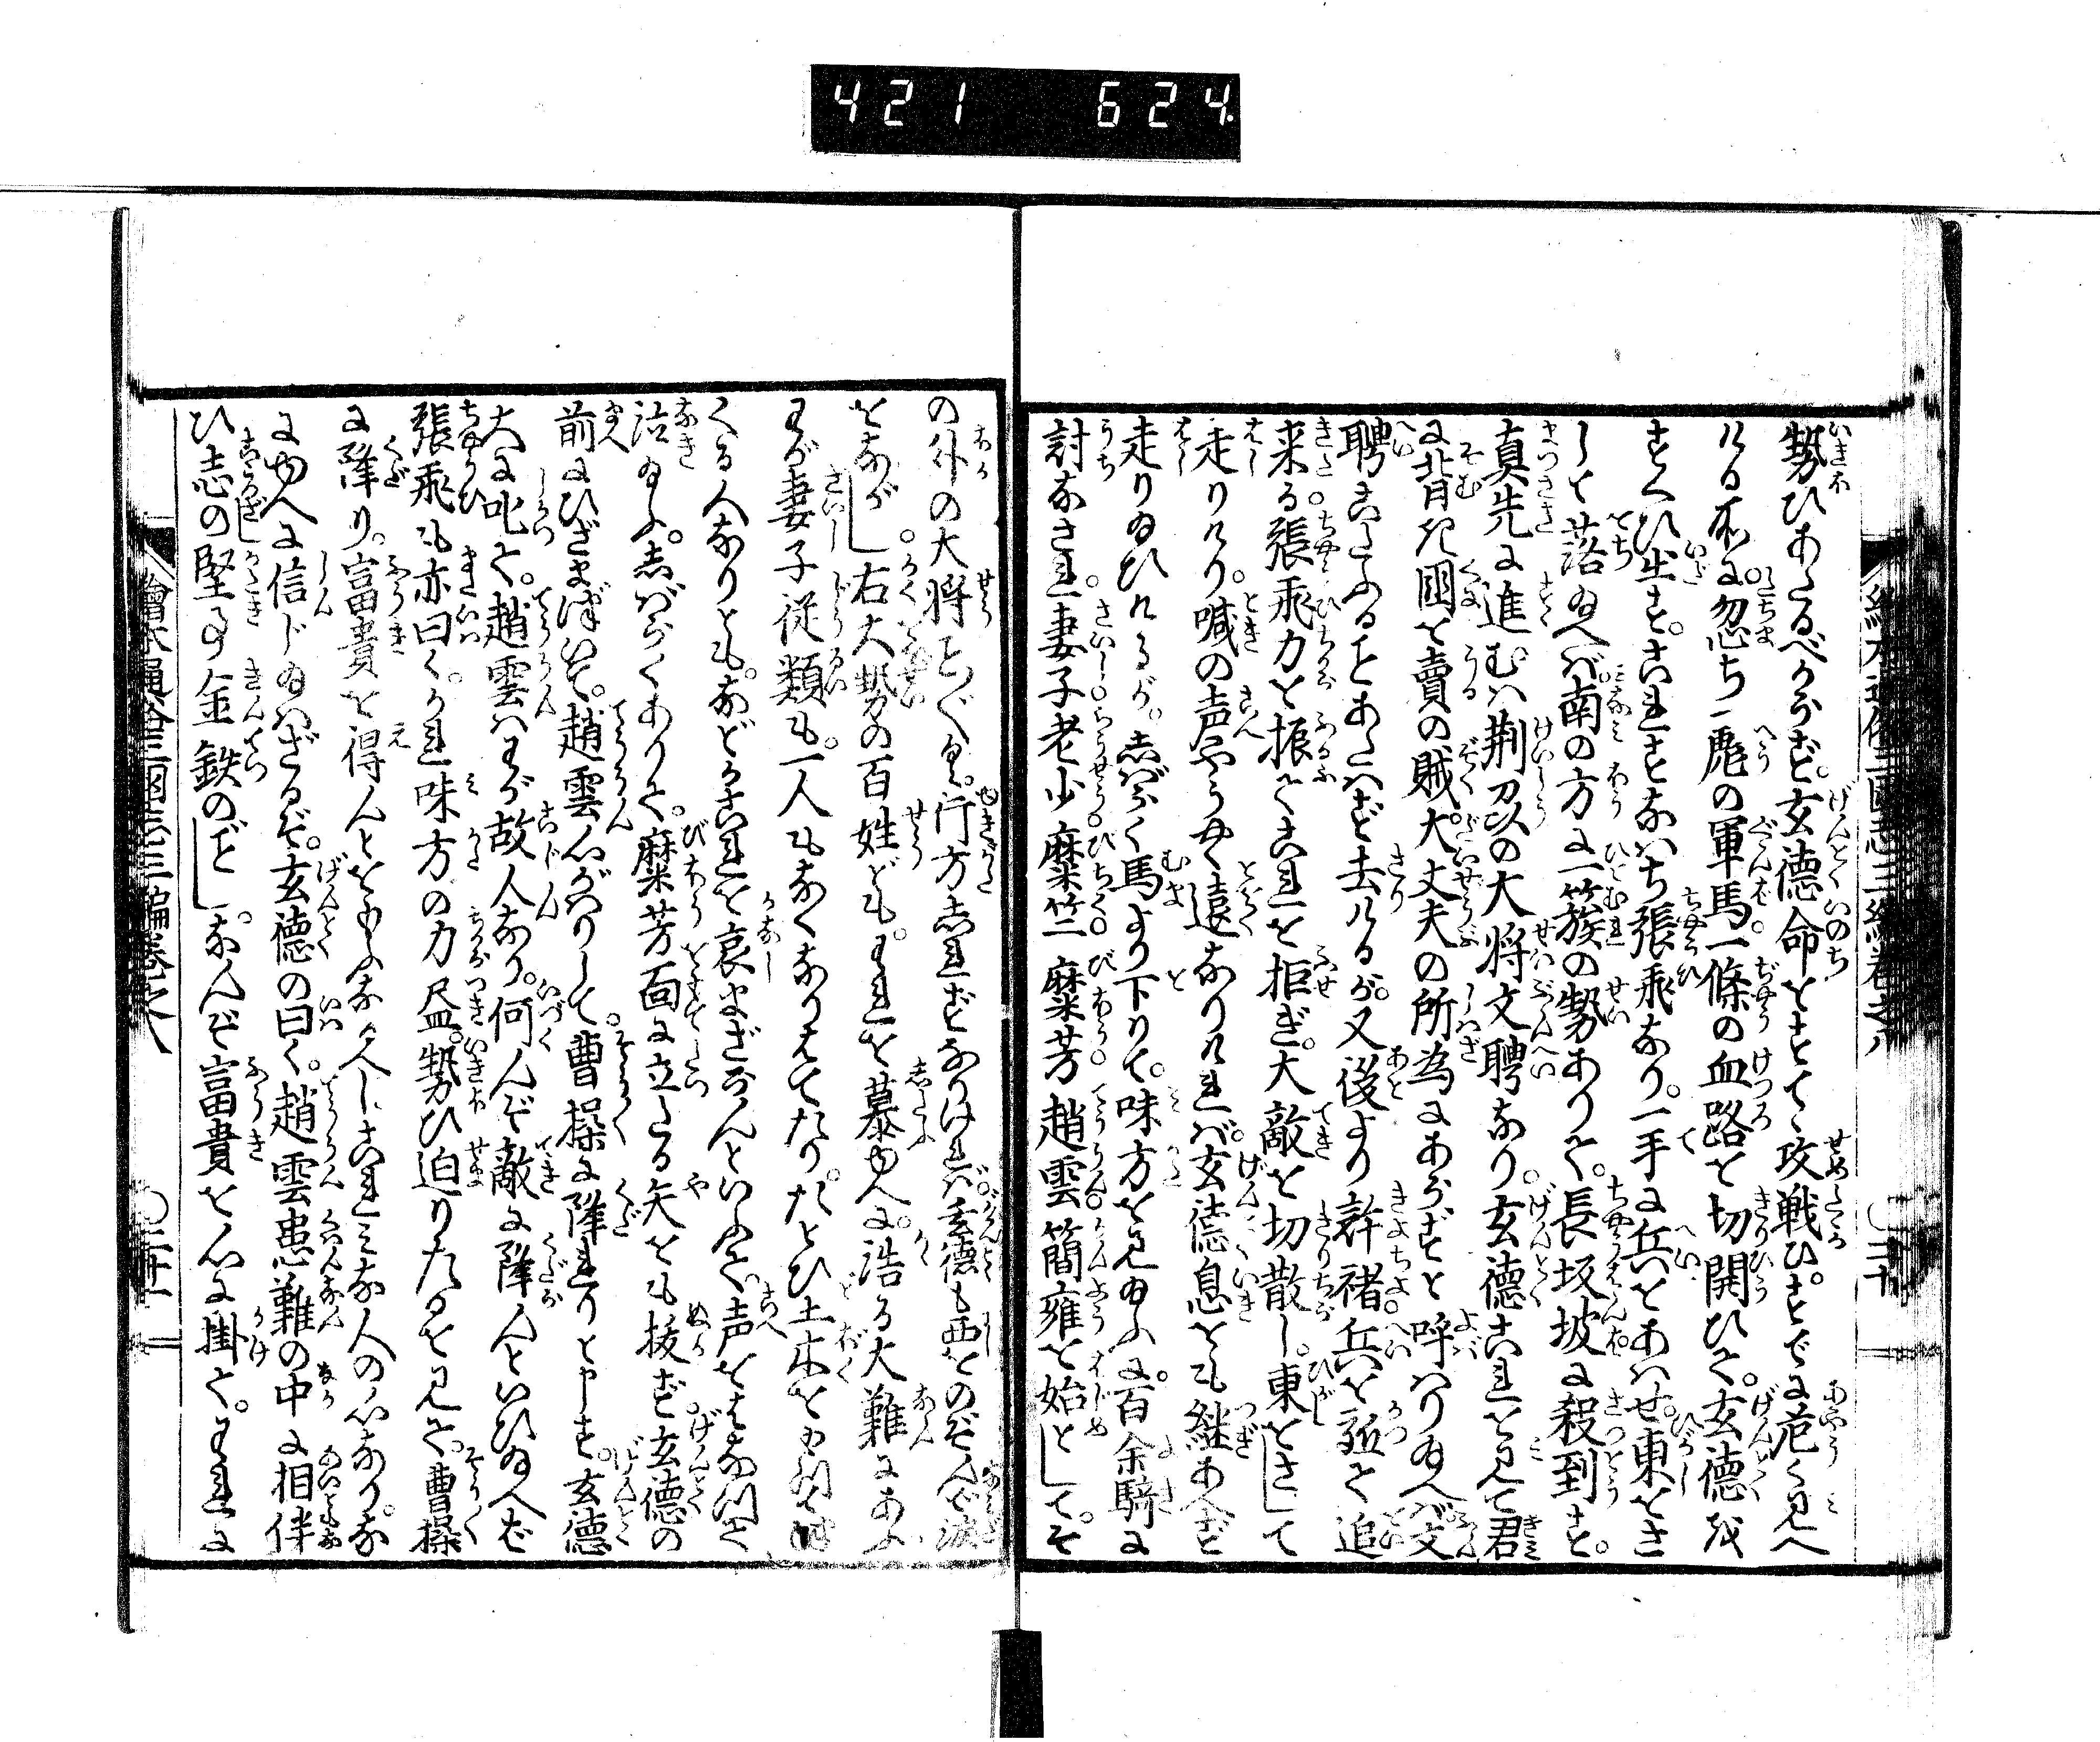 421 624
繪本通俗三國志三編卷之八 〇三十
勢ひあたるべからず。玄德命をすてゝ攻戦ひ。すでに危く見へ
ける所に。忽ち一彪の軍馬。一條の血路を切開ひて。玄德を
すくひ出す。これすなはち張飛なり。一手に兵をあはせ。東をさ
して落ゐへば。南の方に一簇の勢ありて。長坂坡に殺到す。
真先に進むは荆州の大将文聘なり。玄德これを見て君
に背き國を賣の賊。大丈夫の所為にあらずと呼はりゐへば。文
聘こたふることあたはずと去けるが。又後より許褚兵を引て追
来る。張飛力を振てこれを拒ぎ。大敵を切散し。東をさして
走りけり。喊の声やうやく遠なりければ。玄德息をも継あへず
走りゐひけるが。しばらく馬より下りて。味方を見ゐふに。百余騎に
討なされ。妻子老少麋竺麋芳趙雲簡雍を始として。そ
の外の大将ことごとく。行方しれずなりければ。玄德も西をのぞんで涙
をながし。右大勢の百姓ども。われを慕ゆへに。浩る大難にあふ
わが妻子従類も。一人もなくなりはてたり。たとひ土木を
くる人なりとも。などかこれを哀まざらんといふて。声をはなつて
泣ゐふ。しばらくありて。麋芳面に立たる矢をも拔ず。玄德の
前にひざまづいて。趙雲心がはりして。曹操に降れりと申す。玄德
大に叱て。趙雲はわが故人なり。何んぞ敵に降んといひゐへば
張飛も亦曰く。かれ味方の力尽。勢ひ迫りたるを見て。曹操
に降り。富貴を得んとをもふなんし。これみな人の心なり。な
にゆへに信じゐはざるぞ。玄德の曰く。趙雲患難の中に相伴
ひ志の堅事金鉄のごとし。なんぞ富貴を心に掛て。われに
繪本通俗三國志三編卷之八 〇三十一